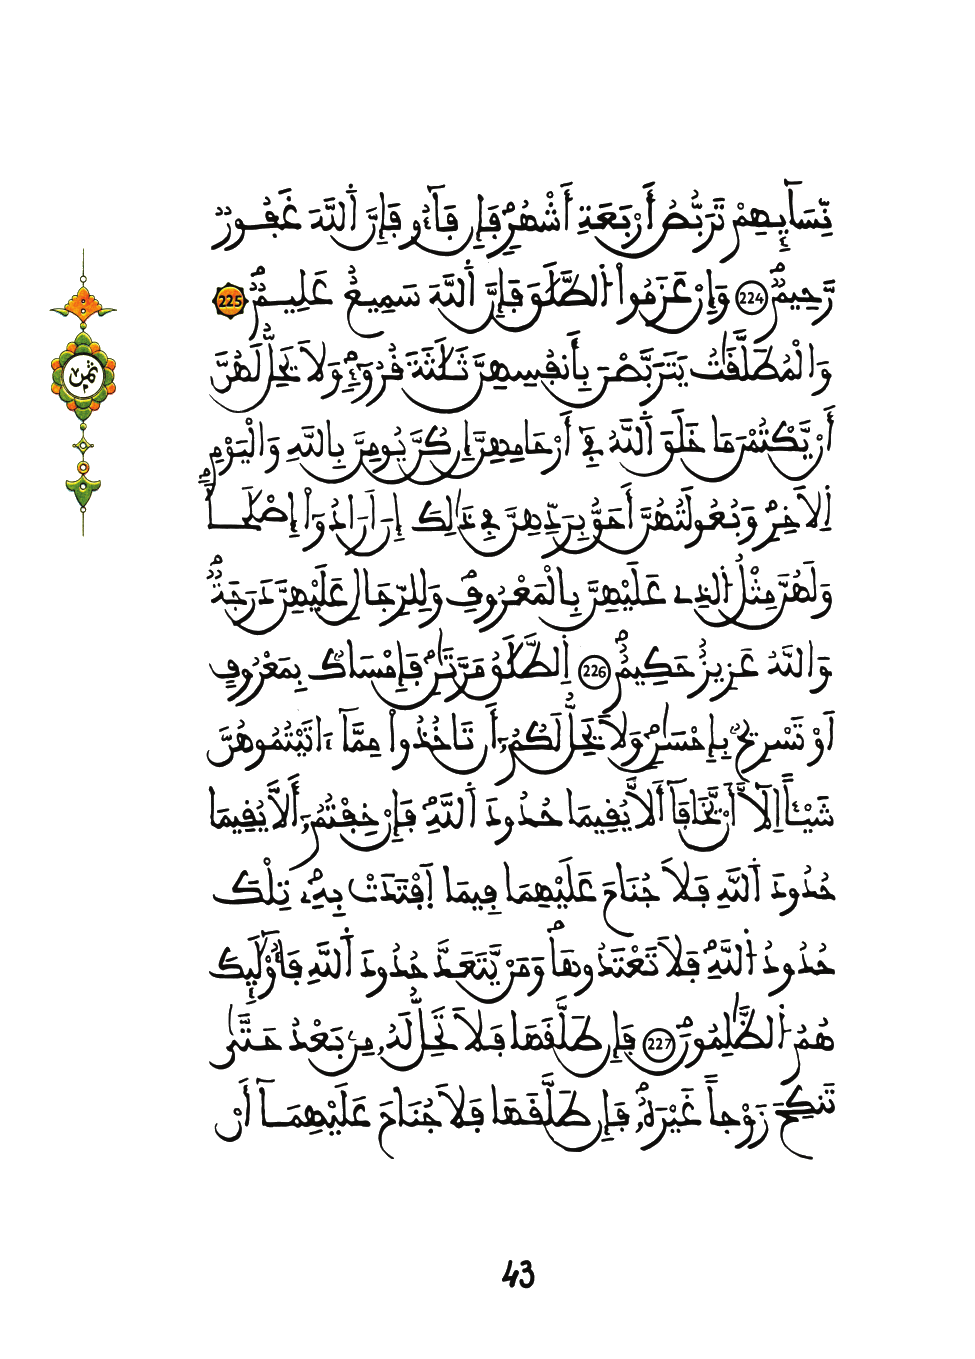 نِّسَآئِهِمْ تَرَبُّصُ أَرْبَعَةِ أَشْهُرٖ فَإِن فَآءُو فَإِنَّ اَ۬للَّهَ غَفُورٞ
رَّحِيمٞۖ 224 وَإِنْ عَزَمُواْ اُ۬لطَّلَٰقَ فَإِنَّ اَ۬للَّهَ سَمِيعٌ عَلِيمٞۖ 225
وَالْمُطَلَّقَٰتُ يَتَرَبَّصْنَ بِأَنفُسِهِنَّ ثَلَٰثَةَ قُرُوٓءٖۖ وَلَا يَحِلُّ لَهُنَّ
أَنْ يَّكْتُمْنَ مَا خَلَقَ اَ۬للَّهُ فِےٓ أَرْحَامِهِنَّ إِن كُنَّ يُومِنَّ بِاللَّهِ وَالْيَوْمِ
اِ۬لَاخِرِۖ وَبُعُولَتُهُنَّ أَحَقُّ بِرَدِّهِنَّ فِے ذَٰلِكَ إِنَ اَرَادُوٓاْ إِصْلَٰحاٗۖ
وَلَهُنَّ مِثْلُ اُ۬لذِے عَلَيْهِنَّ بِالْمَعْرُوفِۖ وَلِلرِّجَالِ عَلَيْهِنَّ دَرَجَةٞۖ
وَاللَّهُ عَزِيزٌ حَكِيمٌۖ 226 اِ۬لطَّلَٰقُ مَرَّتَٰنِۖ فَإِمْسَاكُۢ بِمَعْرُوفٍ
اَوْ تَسْرِيحُۢ بِإِحْسَٰنٖۖ وَلَا يَحِلُّ لَكُمُۥٓ أَن تَاخُذُواْ مِمَّآ ءَاتَيْتُمُوهُنَّ
شَيْـٔاً اِلَّآ أَنْ يَّخَافَآ أَلَّا يُقِيمَا حُدُودَ اَ۬للَّهِۖ فَإِنْ خِفْتُمُۥٓ أَلَّا يُقِيمَا
حُدُودَ اَ۬للَّهِ فَلَا جُنَاحَ عَلَيْهِمَا فِيمَا اَ۪فْتَدَتْ بِهِۦۖ تِلْكَ
حُدُودُ اُ۬للَّهِۖ فَلَا تَعْتَدُوهَاۖ وَمَنْ يَّتَعَدَّ حُدُودَ اَ۬للَّهِ فَأُوْلَٰٓئِكَ
هُمُ اُ۬لظَّٰلِمُونَۖ 227 فَإِن طَلَّقَهَا فَلَا تَحِلُّ لَهُۥ مِنۢ بَعْدُ حَتَّىٰ
تَنكِحَ زَوْجاً غَيْرَهُۥۖ فَإِن طَلَّقَهَا فَلَا جُنَاحَ عَلَيْهِمَآ أَنْ
ثمن
43